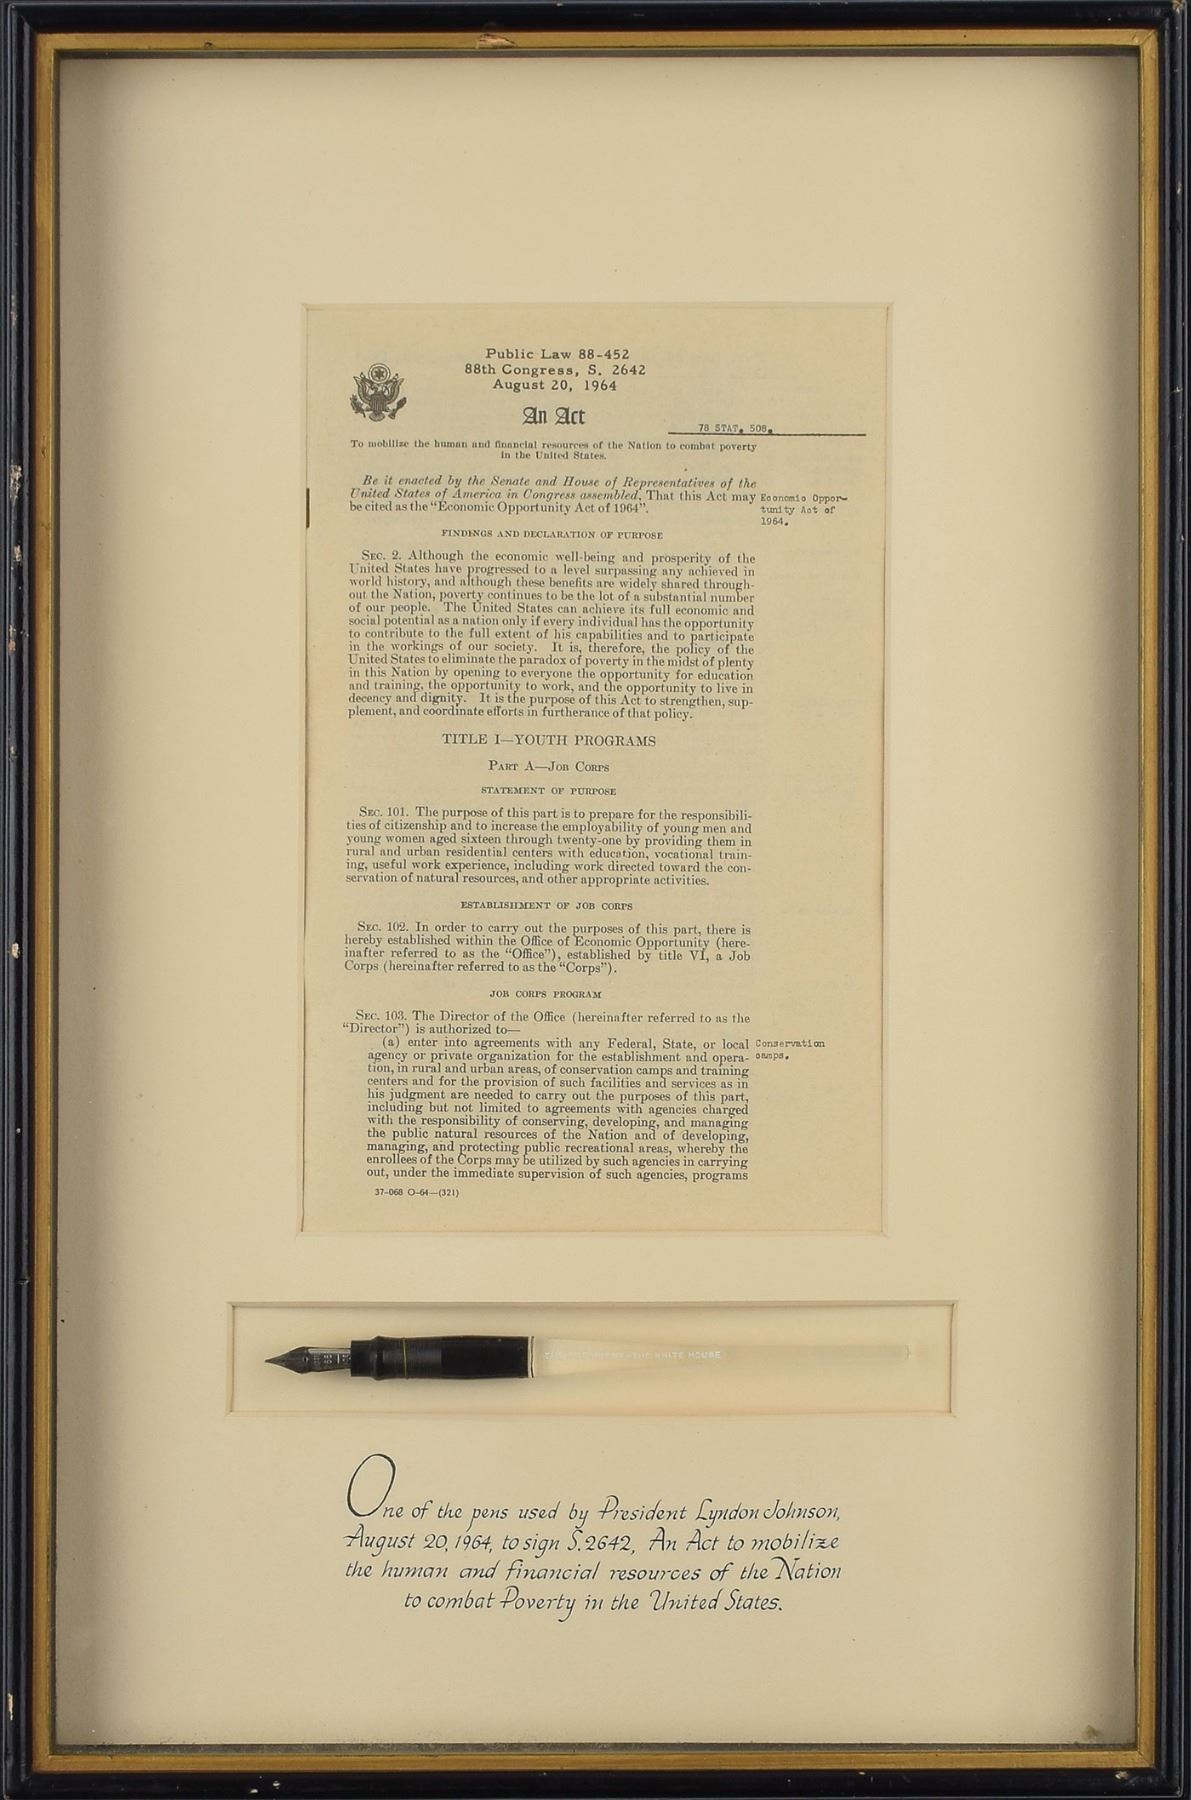 Public Law 88-452
88th Congress, S. 2642
August 20, 1964
An Act
78 STAT. 508.
To mobilize the human and financial resources of the Nation to combat poverty
in the United States.
Be it enacted by the Senate and House of Representatives of the
United States of America in Congress assembled, That this Act may
be cited as the "Economic Opportunity Act of 1964".
Economic Oppor-
tunity Act of
1964.
FINDINGS AND DECLARATION OF PURPOSE
SEC. 2. Although the economic well-being and prosperity of the
United States have progressed to a level surpassing any achieved in
world history, and although these benefits are widely shared through-
out the Nation, poverty continues to be the lot of a substantial number
of our people. The United States can achieve its full economic and
social potential as a nation only if every individual has the opportunity
to contribute to the full extent of his capabilities and to participate
in the workings of our society. It is, therefore, the policy of the
United States to eliminate the paradox of poverty in the midst of plenty
in this Nation by opening to everyone the opportunity for education
and training, the opportunity to work, and the opportunity to live in
decency and dignity. It is the purpose of this Act to strengthen, sup-
plement, and coordinate efforts in furtherance of that policy.
TITLE I—YOUTH PROGRAMS
PART A—JOB CORPS
STATEMENT OF PURPOSE
SEC. 101. The purpose of this part is to prepare for the responsibili-
ties of citizenship and to increase the employability of young men and
young women aged sixteen through twenty-one by providing them in
rural and urban residential centers with education, vocational train-
ing, useful work experience, including work directed toward the con-
servation of natural resources, and other appropriate activities.
ESTABLISHMENT OF JOB CORPS
SEC. 102. In order to carry out the purposes of this part, there is
hereby established within the Office of Economic Opportunity (here-
inafter referred to as the "Office"), established by title VI, a Job
Corps (hereinafter referred to as the "Corps").
JOB CORPS PROGRAM
SEC. 103. The Director of the Office (hereinafter referred to as the
"Director") is authorized to—
(a) enter into agreements with any Federal, State, or local
agency or private organization for the establishment and opera-
tion, in rural and urban areas, of conservation camps and training
centers and for the provision of such facilities and services as in
his judgment are needed to carry out the purposes of this part,
including but not limited to agreements with agencies charged
with the responsibility of conserving, developing, and managing
the public natural resources of the Nation and of developing,
managing, and protecting public recreational areas, whereby the
enrollees of the Corps may be utilized by such agencies in carrying
out, under the immediate supervision of such agencies, programs
Conservation
camps.
37-068 O-64—(321)
THE PRESIDENT-THE WHITE HOUSE
One of the pens used by President Lyndon Johnson,
August 20, 1964, to sign S. 2642, An Act to mobilize
the human and financial resources of the Nation
to combat Poverty in the United States.